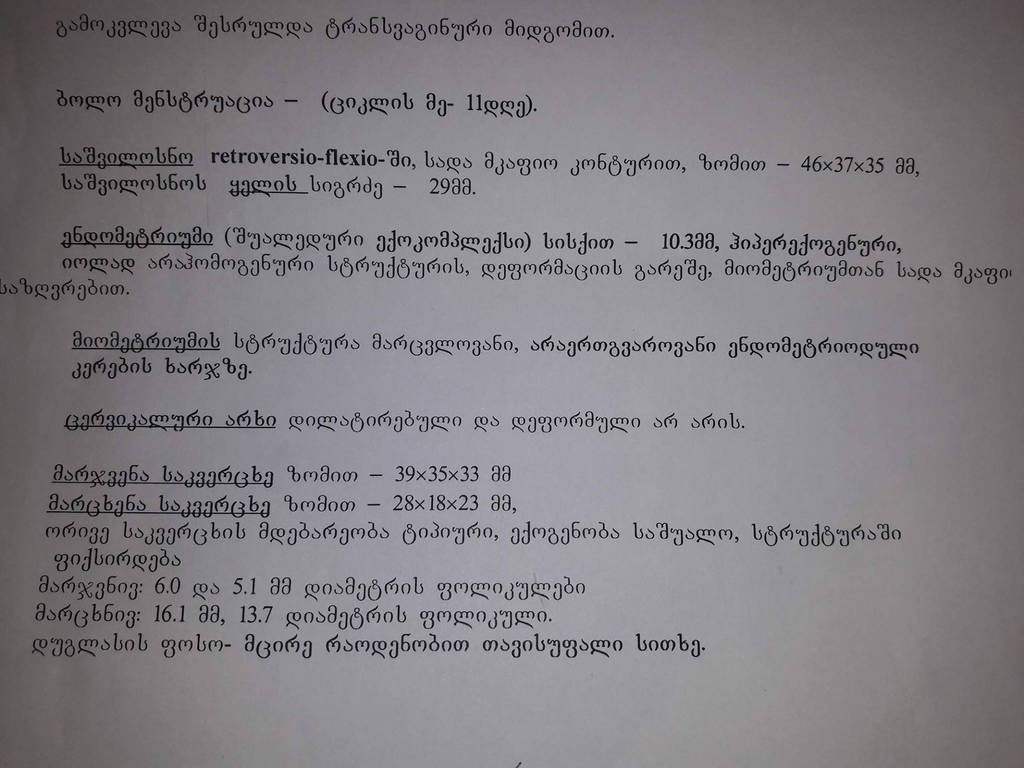 გამოკვლევა შესრულდა ტრანსვაგინური მიდგომით.
ბოლო მენსტრუაცია – (ციკლის მე- 11დღე).
საშვილოსნო retroversio-flexio-ში, სადა მკაფიო კონტურით, ზომით – 46×37×35 მმ,
საშვილოსნოს ყელის სიგრძე – 29მმ.
ენდომეტრიუმი (შუალედური ექოკომპლექსი) სისქით – 10.3მმ, ჰიპერექოგენური,
იოლად არაჰომოგენური სტრუქტურის, დეფორმაციის გარეშე, მიომეტრიუმთან სადა მკაფი
საზღვრებით.
მიომეტრიუმის სტრუქტურა მარცვლოვანი, არაერთგვაროვანი ენდომეტრიოდული
კერების ხარჯზე.
ცერვიკალური არხი დილატირებული და დეფორმული არ არის.
მარჯვენა საკვერცხე ზომით – 39×35×33 მმ
მარცხენა საკვერცხე ზომით – 28×18×23 მმ,
ორივე საკვერცხის მდებარეობა ტიპიური, ექოგენობა საშუალო, სტრუქტურაში
ფიქსირდება
მარჯვნივ: 6.0 და 5.1 მმ დიამეტრის ფოლიკულები
მარცხნივ: 16.1 მმ, 13.7 დიამეტრის ფოლიკული.
დუგლასის ფოსო- მცირე რაოდენობით თავისუფალი სითხე.